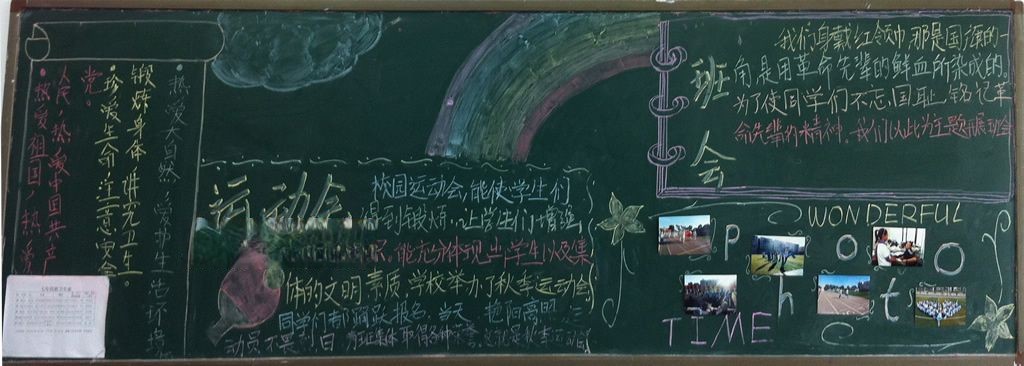 热爱祖国，热爱
人民，热爱中国共产
党。
珍爱生命，注意安全。
锻炼身体，讲究卫生。
热爱大自然，爱护生
运动会
校园运动会，能使学生们
得到锻炼，让学生们增强
能充分体现出学生以及集
体的文明素质，学校举办了秋季运动会
同学们都踊跃报名，当天，艳阳高照，
动员不畏
班会
我们身戴红领巾，那是国旗的一
角是用革命先辈的鲜血所染成的。
为了使同学们不忘国耻，铭记革
命先辈的精神。我们以此为主题开展班会
WONDERFUL
p o o
h t
TIME